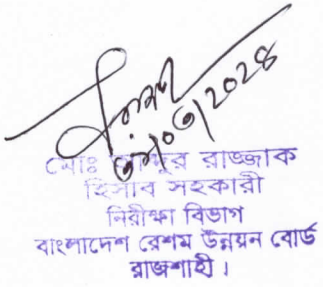 মোঃ আব্দুর রাজ্জাক
হিসাব সহকারী
নিরীক্ষা বিভাগ
বাংলাদেশ রেশম উন্নয়ন বোর্ড
রাজশাহী।